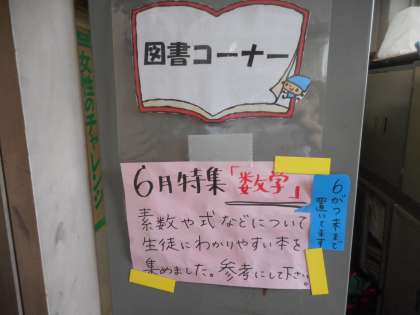 図書コーナー
女性のチャレンジ
6月特集「数学」
素数や式などについて
生徒にわかりやすい本を
集めました。参考にして下さい。
6がつ末まで
置いてます